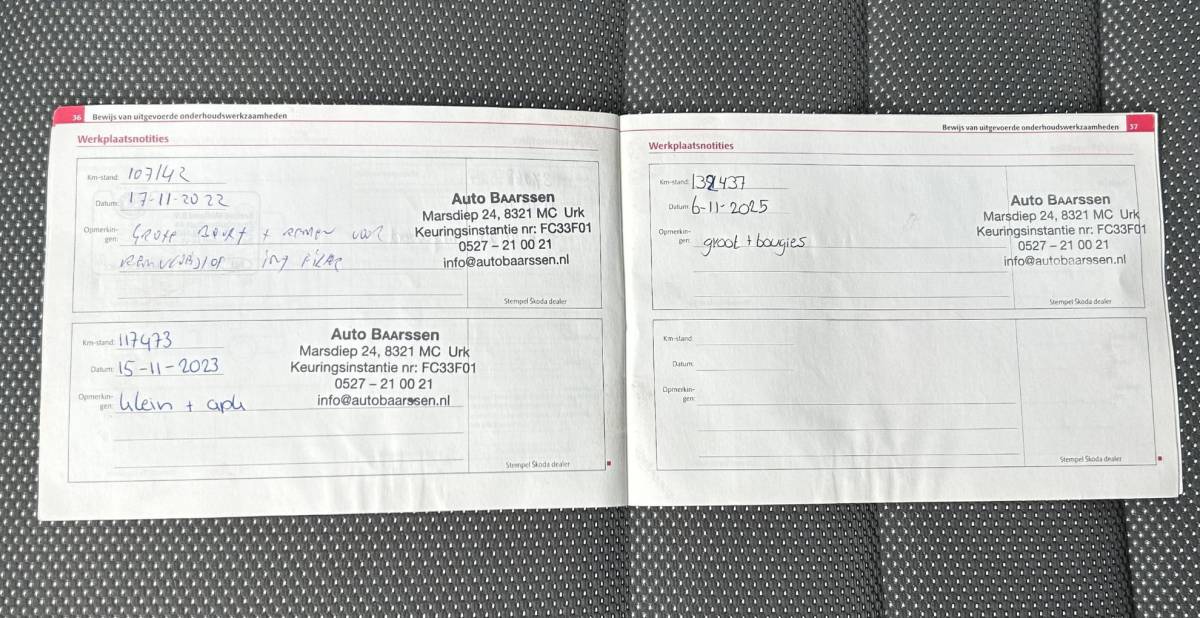 36 Bewijs van uitgevoerde onderhoudswerkzaamheden
Werkplaatsnotities
Km-stand: 107142
Datum: 17-11-2022
Opmerkin-
gen: Grote Beurt + remmen voor
remvloeistof int filter
Auto BAARSSEN
Marsdiep 24, 8321 MC Urk
Keuringsinstantie nr: FC33F01
0527 – 21 00 21
info@autobaarssen.nl
Stempel Škoda dealer
Km-stand: 117473
Datum: 15-11-2023
Opmerkin-
gen: klein + apk
Auto BAARSSEN
Marsdiep 24, 8321 MC Urk
Keuringsinstantie nr: FC33F01
0527 – 21 00 21
info@autobaarssen.nl
Stempel Škoda dealer
Bewijs van uitgevoerde onderhoudswerkzaamheden 37
Werkplaatsnotities
Km-stand: 132437
Datum: 6-11-2025
Opmerkin-
gen: groot + bougies
Auto BAARSSEN
Marsdiep 24, 8321 MC Urk
Keuringsinstantie nr: FC33F01
0527 – 21 00 21
info@autobaarssen.nl
Stempel Škoda dealer
Km-stand:
Datum:
Opmerkin-
gen:
Stempel Škoda dealer